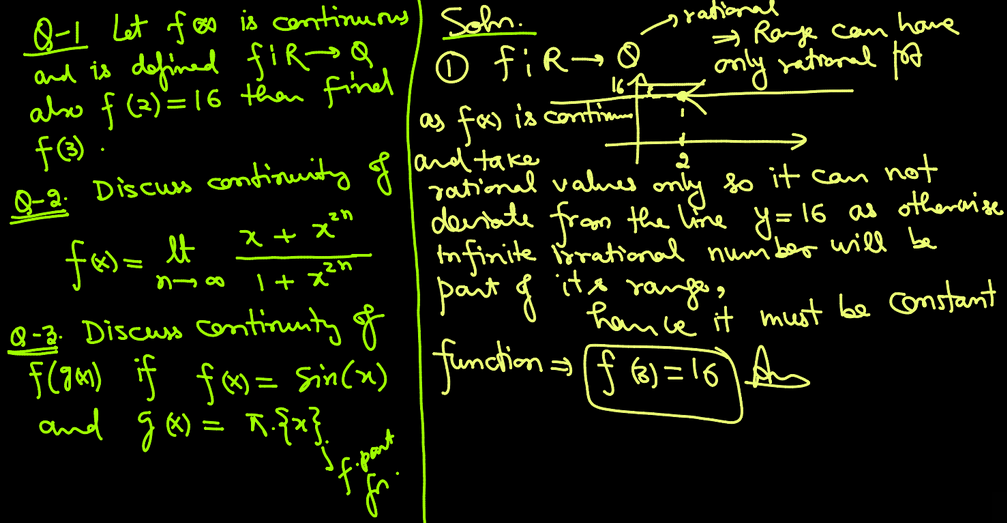 Q-1 Let f(x) is continuous
and is defined f:R→Q
also f(2)=16 then find
f(3).
Q-2. Discuss continuity of
f(x) = lt n→∞ (x + x^2n)/(1 + x^2n)
Q-3. Discuss continuity of
f(g(x)) if f(x) = sin(x)
and g(x) = π.{x}.
f.part
fn.
Soln.
→rational
① f:R→Q ⇒ Range can have
only rational
16
as f(x) is continu
2
and take
rational values only so it can not
deviate from the line y=16 as otherwise
infinite irrational number will be
part of it's range,
hance it must be constant
function ⇒ f(3)=16 Ans